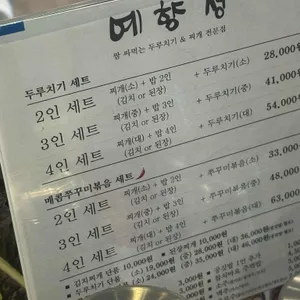 예향정
쌈 싸먹는 두루치기 & 찌개 전문점
두루치기 세트
2인 세트 찌개(소) + 밥 2인 (김치 or 된장) + 두루치기(소) 28,000원
3인 세트 찌개(중) + 밥 3인 (김치 or 된장) + 두루치기(중) 41,000원
4인 세트 찌개(대) + 밥 4인 (김치 or 된장) + 두루치기(대) 54,000원
매콤쭈꾸미볶음 세트
2인 세트 찌개(소) + 밥 2인 (김치 or 된장) + 쭈꾸미볶음(소) 33,000
3인 세트 찌개(중) + 밥 3인 (김치 or 된장) + 쭈꾸미볶음(중) 48,000
4인 세트 찌개(대) + 밥 4인 (김치 or 된장) + 쭈꾸미볶음(대) 63,000
■ 김치찌개 단품 10,000원
■ 두루치기 단품 (소) 19,000원 (중) 28,000원 (대) 36,000원
(소) 24,000원 (중) 35,000원 (대) 46,000원